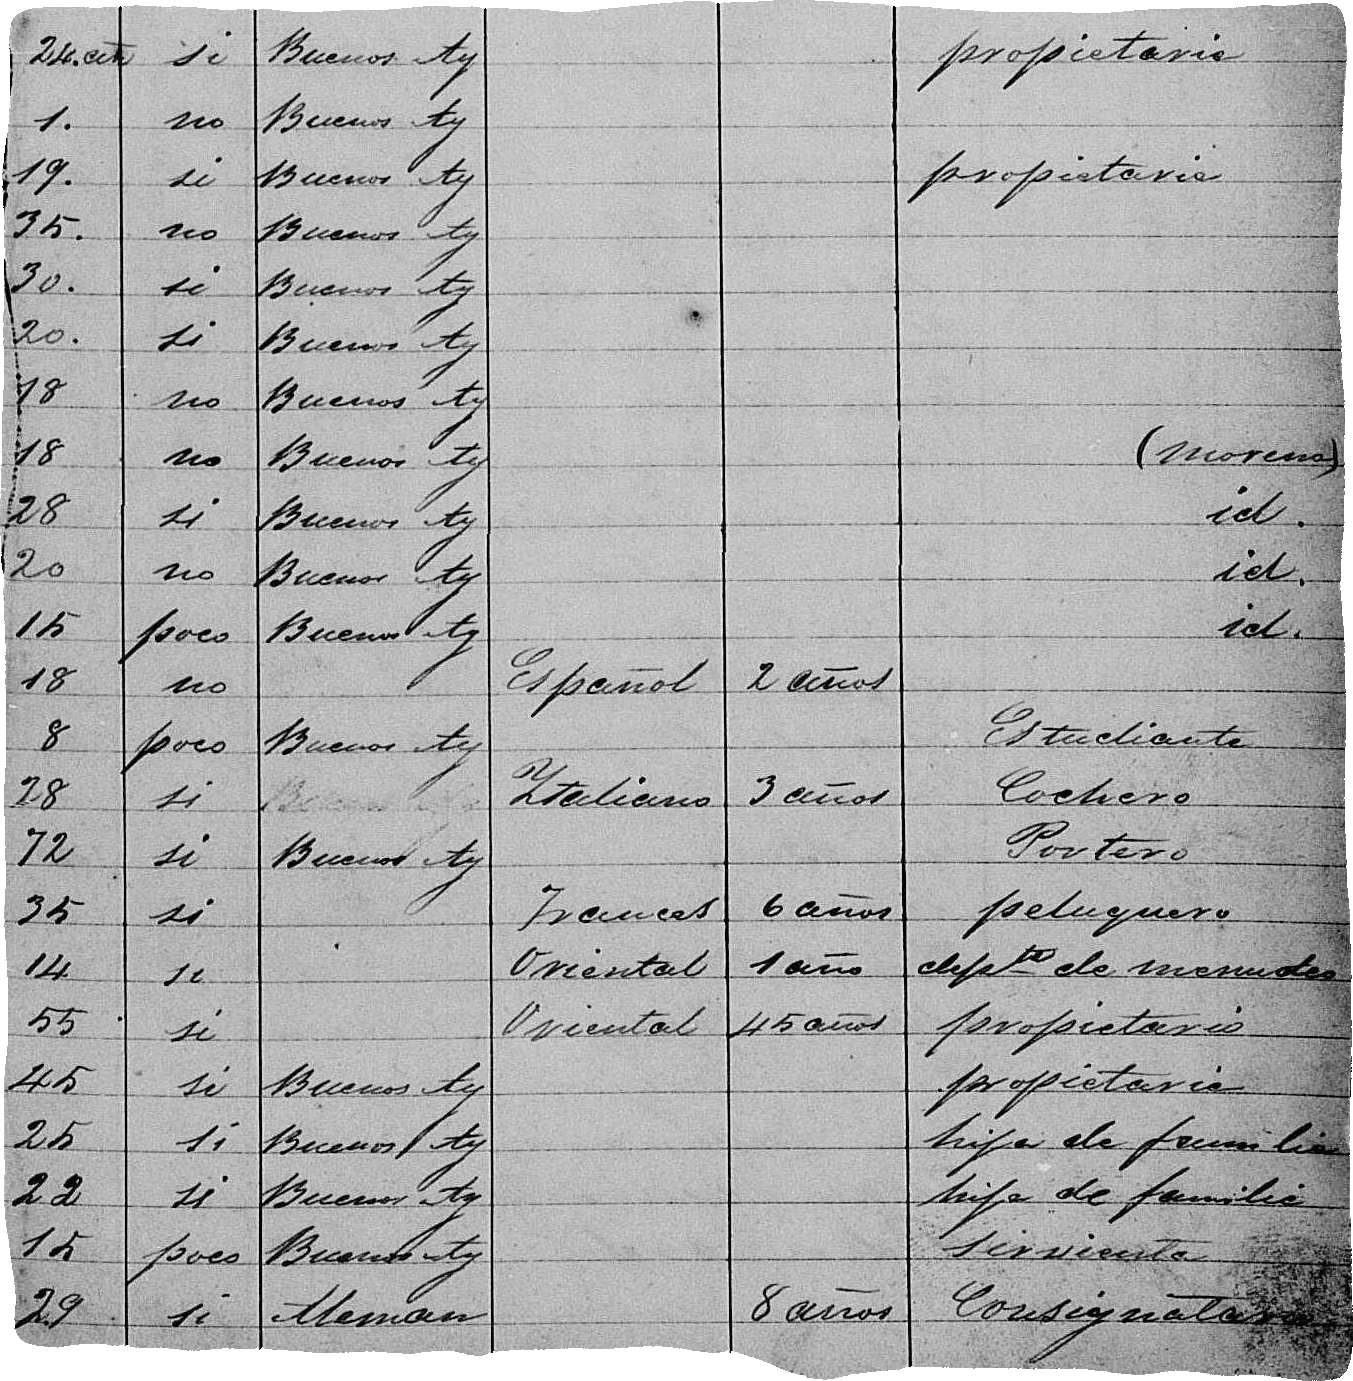 24. si Buenos Ay propietaria
1. no Buenos Ay
19. si Buenos Ay propietaria
35. no Buenos Ay
30. si Buenos Ay
20. si Buenos Ay
18 no Buenos Ay
18 no Buenos Ay (moreno)
28 si Buenos Ay id.
20 no Buenos Ay id.
15 poco Buenos Ay id.
18 no Español 2 años
8 poco Buenos Ay Estudiante
28 si Italiano 3 años Cochero
72 si Buenos Ay Portero
35 si Frances 6 años peluquero
14 si Oriental 1 año depte de menudeo
55 si Oriental 45 años propietario
45 si Buenos Ay propietaria
25 si Buenos Ay hija de familia
22 si Buenos Ay hija de familia
15 poco Buenos Ay sirvienta
29 si Aleman 8 años Consignatario